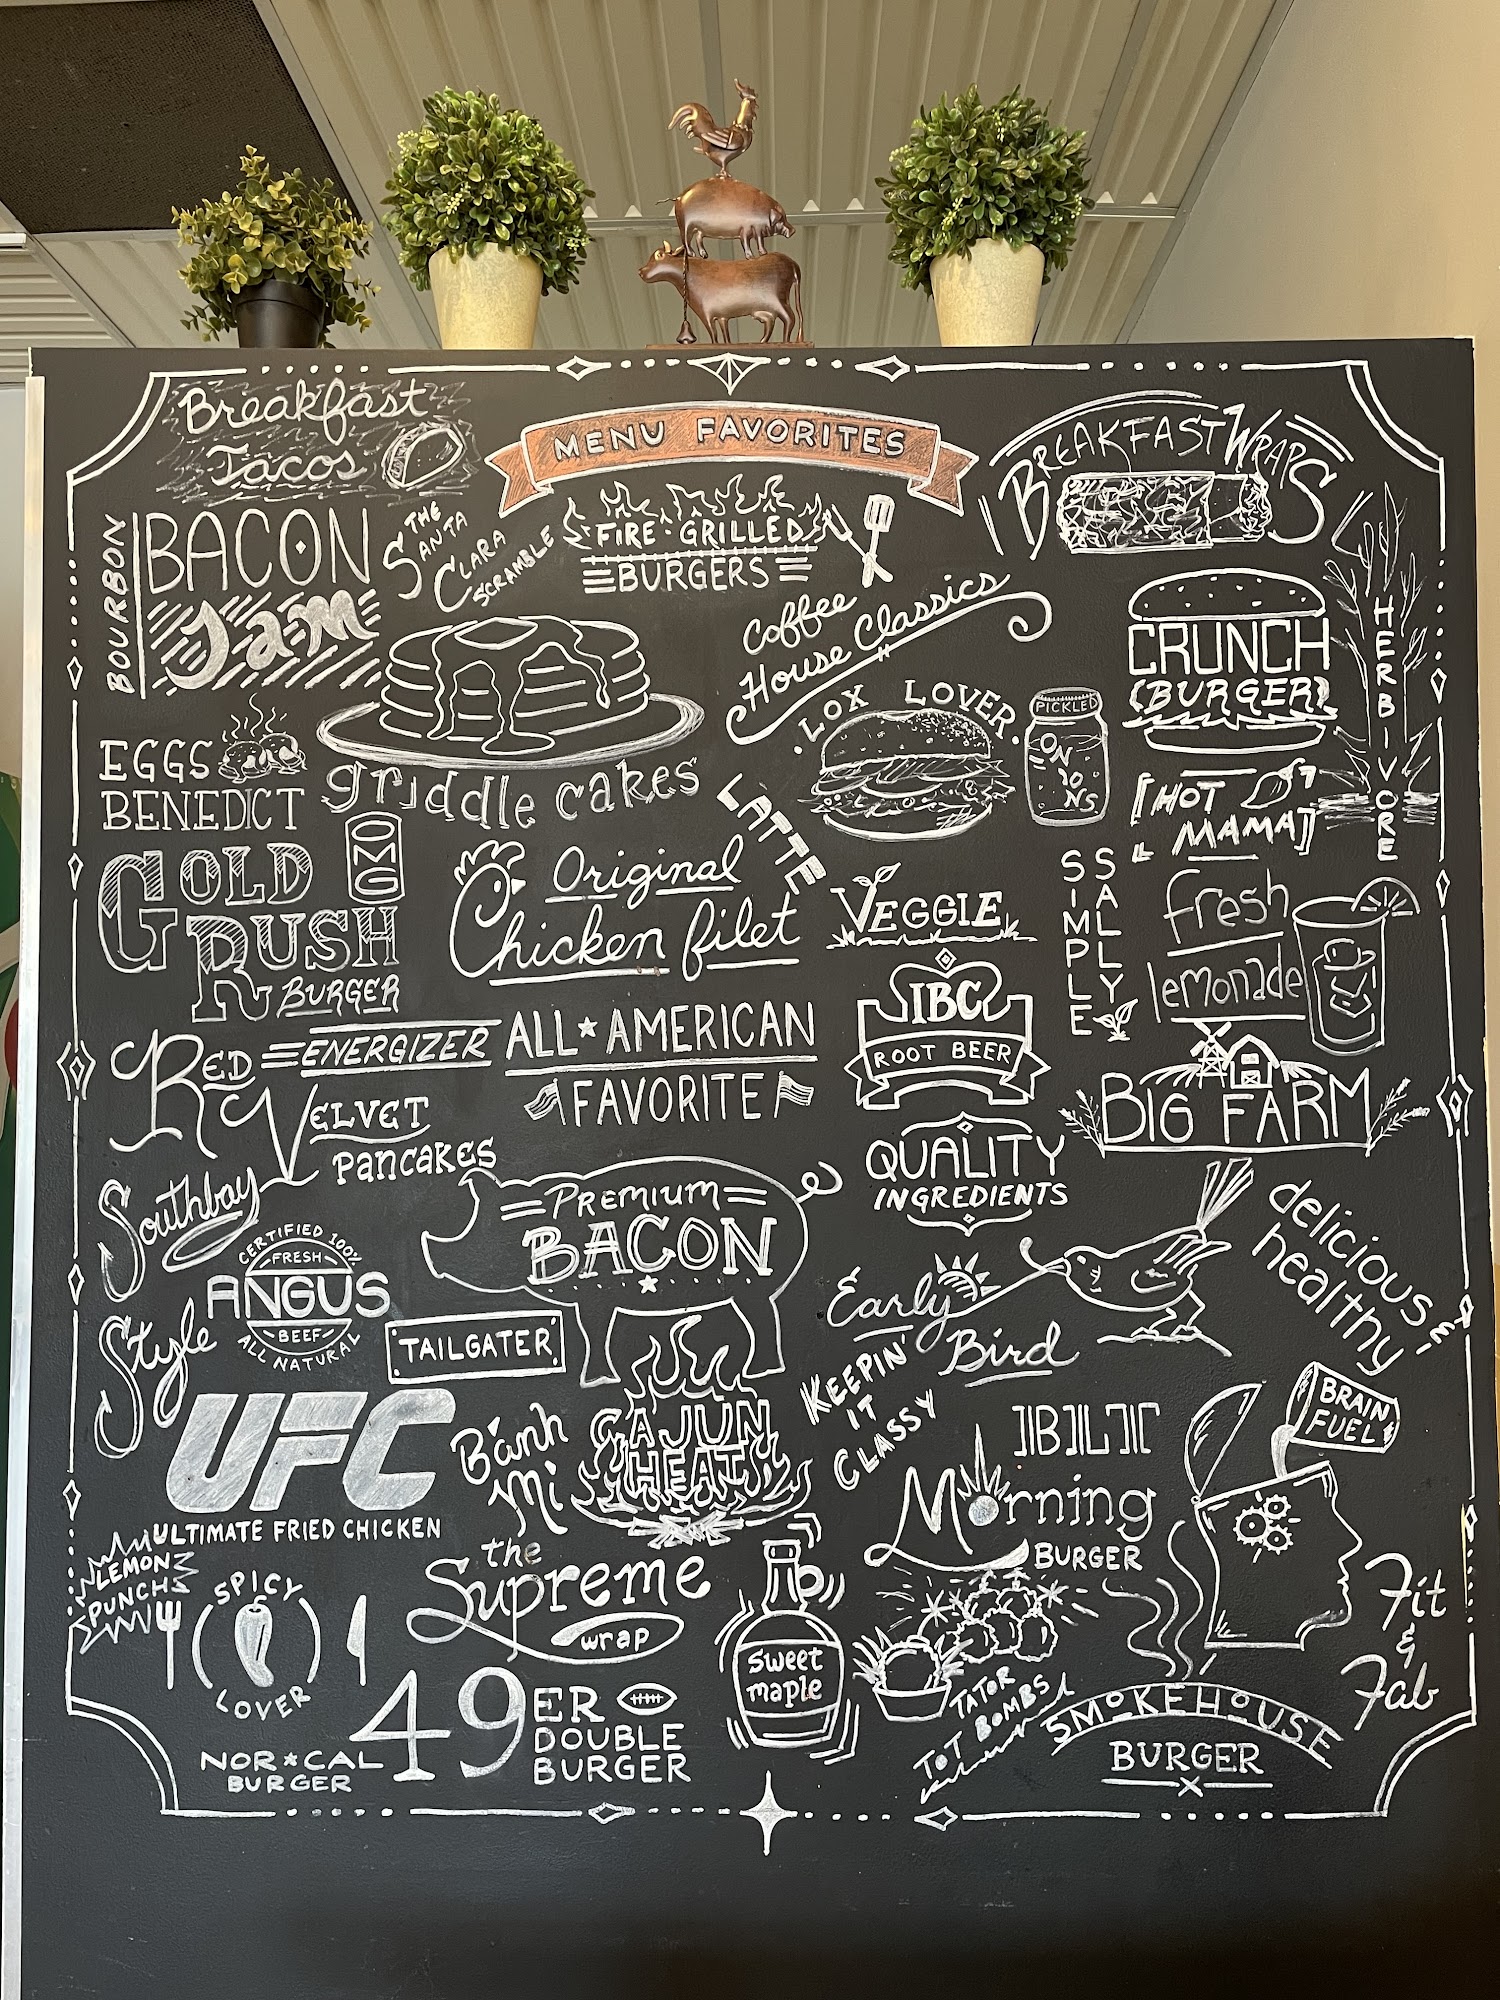 MENU FAVORITES
Breakfast
Tacos
BREAKFAST WRAPS
BOURBON
BACON
Jam
THE
SANTA
CLARA
SCRAMBLE
FIRE·GRILLED
BURGERS
Coffee
House Classics
CRUNCH
(BURGER)
HERBIVORE
EGGS
BENEDICT
griddle cakes
·LOX LOVER·
PICKLED
ONIONS
[HOT
MAMA]
LATTE
GOLD
RUSH
BURGER
OMG
Original
Chicken filet
VEGGIE
SIMPLE
SALLY
fresh
lemonade
RED
VELVET
PANCAKES
ENERGIZER
ALL★AMERICAN
FAVORITE
IBC
ROOT BEER
BIG FARM
QUALITY
INGREDIENTS
Southbay
Style
CERTIFIED 100%
FRESH
ANGUS
BEEF
ALL NATURAL
PREMIUM
BACON
TAILGATER
Early
Bird
delicious
healthy
KEEPIN'
IT
CLASSY
BRAIN
FUEL
UFC
ULTIMATE FRIED CHICKEN
Bánh
Mi
CAJUN
HEAT
BLT
Morning
BURGER
LEMON
PUNCH
SPICY
LOVER
the
Supreme
wrap
sweet
maple
TATOR
TOT BOMBS
Fit
&
Fab
NOR★CAL
BURGER
49ER
DOUBLE
BURGER
SMOKEHOUSE
BURGER